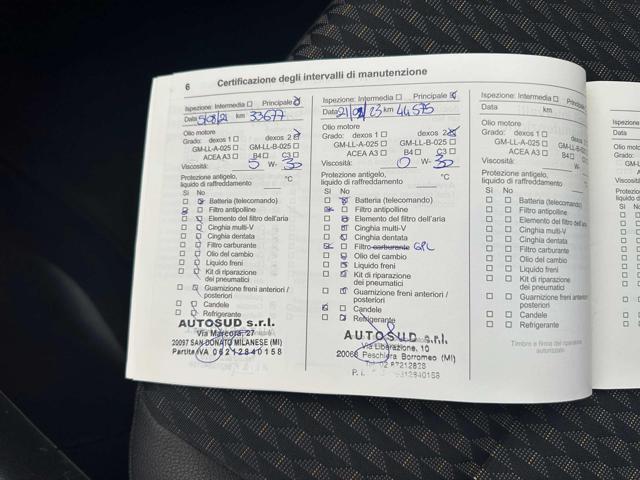 6 Certificazione degli intervalli di manutenzione
Ispezione: Intermedia ☐ Principale ☒
Data 5/08/21 km 33677
Olio motore
Grado: dexos 1 ☐ dexos 2 ☒
GM-LL-A-025 ☐ GM-LL-B-025 ☐
ACEA A3 ☐ B4 ☐ C3 ☐
Viscosità: 0 W- 30
Protezione antigelo,
liquido di raffreddamento ____ °C
Sì No
Batteria (telecomando)
Filtro antipolline
Elemento del filtro dell'aria
Cinghia multi-V
Cinghia dentata
Filtro carburante
Olio del cambio
Liquido freni
Kit di riparazione
dei pneumatici
Guarnizione freni anteriori /
posteriori
Candele
Refrigerante
AUTOSUD s.r.l.
Via Marcora, 27
20097 SAN DONATO MILANESE (MI)
Partita IVA 06212840158
Ispezione: Intermedia ☐ Principale ☒
Data 23 km 44575
Olio motore
Grado: dexos 1 ☐ dexos 2 ☒
GM-LL-A-025 ☐ GM-LL-B-025 ☐
ACEA A3 ☐ B4 ☐ C3 ☐
Viscosità: 0 W- 30
Protezione antigelo,
liquido di raffreddamento ____ °C
Sì No
Batteria (telecomando)
Filtro antipolline
Elemento del filtro dell'aria
Cinghia multi-V
Cinghia dentata
Filtro carburante GPL
Olio del cambio
Liquido freni
Kit di riparazione
dei pneumatici
Guarnizione freni anteriori /
posteriori
Candele
Refrigerante
AUTOSUD s.r.l.
Via Liberazione, 10
20068 Peschiera Borromeo (MI)
Ispezione: Intermedia ☐ Principale ☐
Data km
Olio motore
Grado: dexos 1 ☐ dexos 2 ☐
GM-LL-A-025 ☐ GM-LL-B-025 ☐
ACEA A3 ☐ B4 ☐ C3 ☐
Viscosità: W-
Protezione antigelo,
liquido di raffreddamento ____ °C
Sì No
Batteria (telecomando)
Filtro antipolline
Elemento del filtro dell'aria
Cinghia multi-V
Cinghia dentata
Filtro carburante
Olio del cambio
Liquido freni
Kit di riparazione
dei pneumatici
Guarnizione freni anteriori /
posteriori
Candele
Refrigerante
Timbro e firma del riparatore
autorizzato